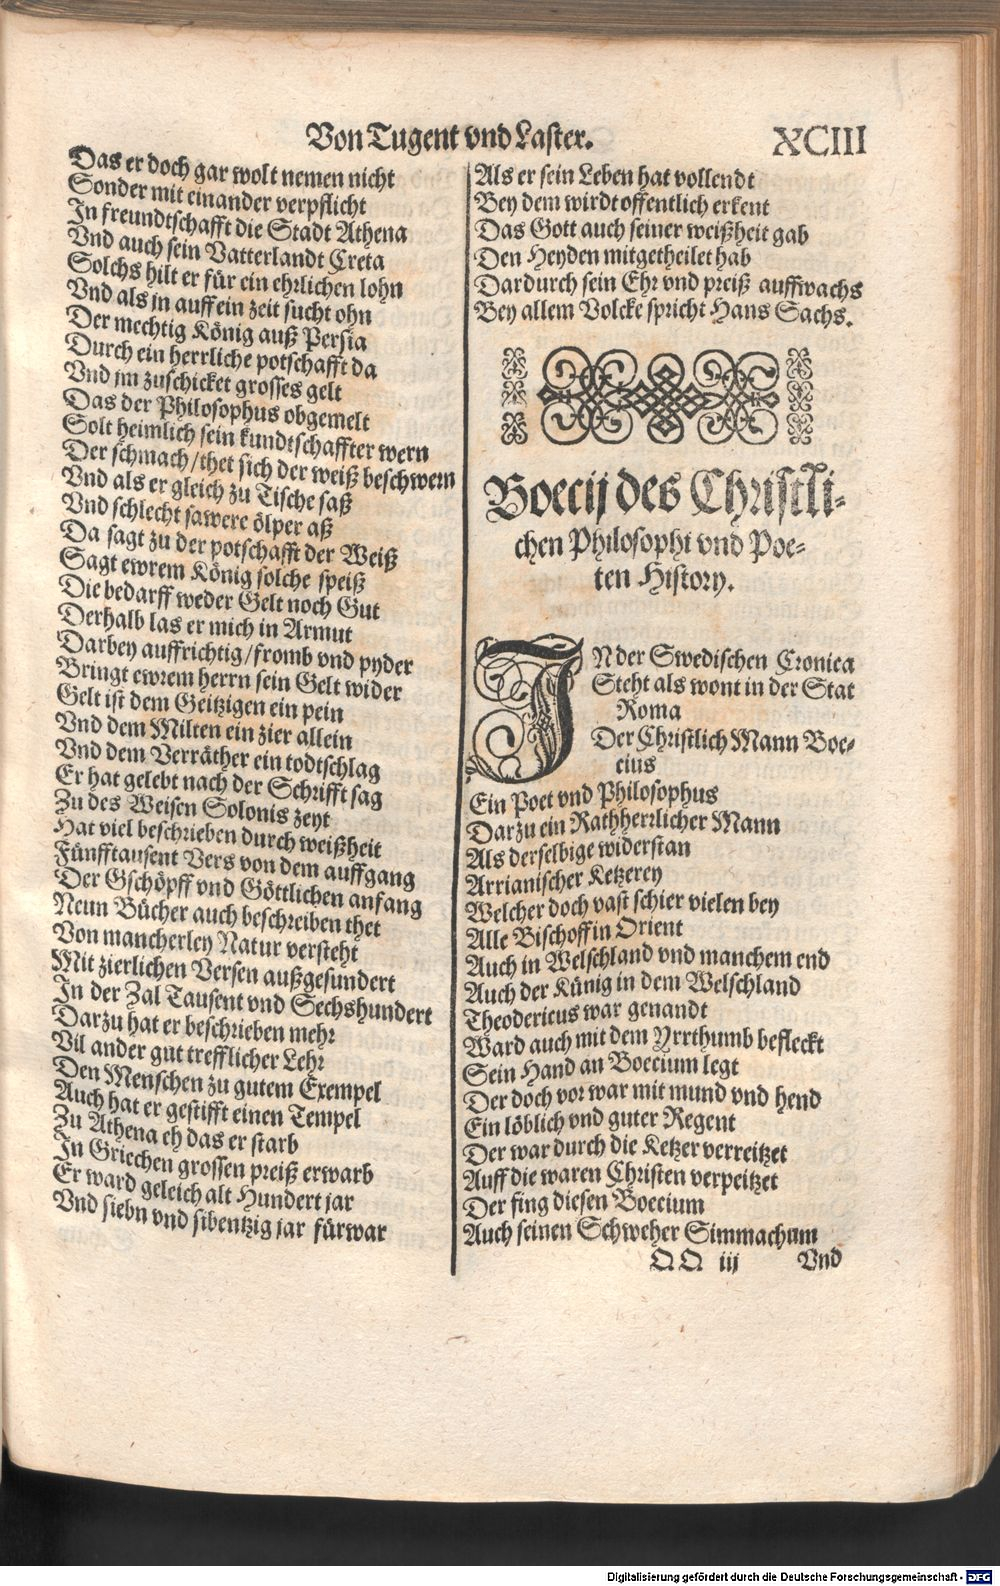 Von Tugent vnd Laster. XCIII
Das er doch gar wolt nemen nicht
Sonder mit einander verpflicht
In freundtschafft die Stadt Athena
Vnd auch sein Vatterlandt Creta
Solchs hilt er für ein ehrlichen lohn
Vnd als jn auff ein zeit sucht ohn
Der mechtig König auß Persia
Durch ein herrliche potschafft da
Vnd jm zuschicket grosses gelt
Das der Philosophus obgemelt
Solt heimlich sein kundtschaffter wern
Der schmach / thet sich der weiß beschwern
Vnd als er gleich zu Tische saß
Vnd schlecht sawere ölper aß
Da sagt zu der potschafft der Weiß
Sagt ewrem König solche speiß
Die bedarff weder Gelt noch Gut
Derhalb las er mich in Armut
Darbey auffrichtig / fromb vnd pyder
Bringt ewrem herrn sein Gelt wider
Gelt ist dem Geitzigen ein pein
Vnd dem Milten ein zier allein
Vnd dem Verräther ein todtschlag
Er hat gelebt nach der Schrifft sag
Zu des Weisen Solonis zeyt
Hat viel beschrieben durch weißheit
Fünfftausent Vers von dem auffgang
Der Gschöpff vnd Göttlichen anfang
Neun Bücher auch beschreiben thet
Von mancherley Natur versteht
Mit zierlichen Versen außgesundert
In der Zal Tausent vnd Sechshundert
Darzu hat er beschrieben mehr
Vil ander gut trefflicher Lehr
Den Menschen zu gutem Exempel
Auch hat er gestifft einen Tempel
Zu Athena eh das er starb
In Griechen grossen preiß erwarb
Er ward geleich alt Hundert jar
Vnd siebn vnd sibentzig jar fürwar
Als er sein Leben hat vollendt
Bey dem wirdt offentlich erkent
Das Gott auch seiner weißheit gab
Den Heyden mitgetheilet hab
Dardurch sein Ehr vnd preiß auffwachs
Bey allem Volcke spricht Hans Sachs.
Boecij des Christli-
chen Philosophi vnd Poe-
ten History.
IN der Swedischen Cronica
Steht als wont in der Stat
Roma
Der Christlich Mann Boe-
cius
Ein Poet vnd Philosophus
Darzu ein Rathherrlicher Mann
Als derselbige widerstan
Arrianischer Ketzerey
Welcher doch vast schier vielen bey
Alle Bischoff in Orient
Auch in Welschland vnd manchem end
Auch der Künig in dem Welschland
Theodericus war genandt
Ward auch mit dem Yrrthumb befleckt
Sein Hand an Boecium legt
Der doch vor war mit mund vnd hend
Ein löblich vnd guter Regent
Der war durch die Ketzer verreitzet
Auff die waren Christen verpeitzet
Der fing diesen Boecium
Auch seinen Schweher Simmachum
QQ iij Vnd
Digitalisierung gefördert durch die Deutsche Forschungsgemeinschaft - DFG